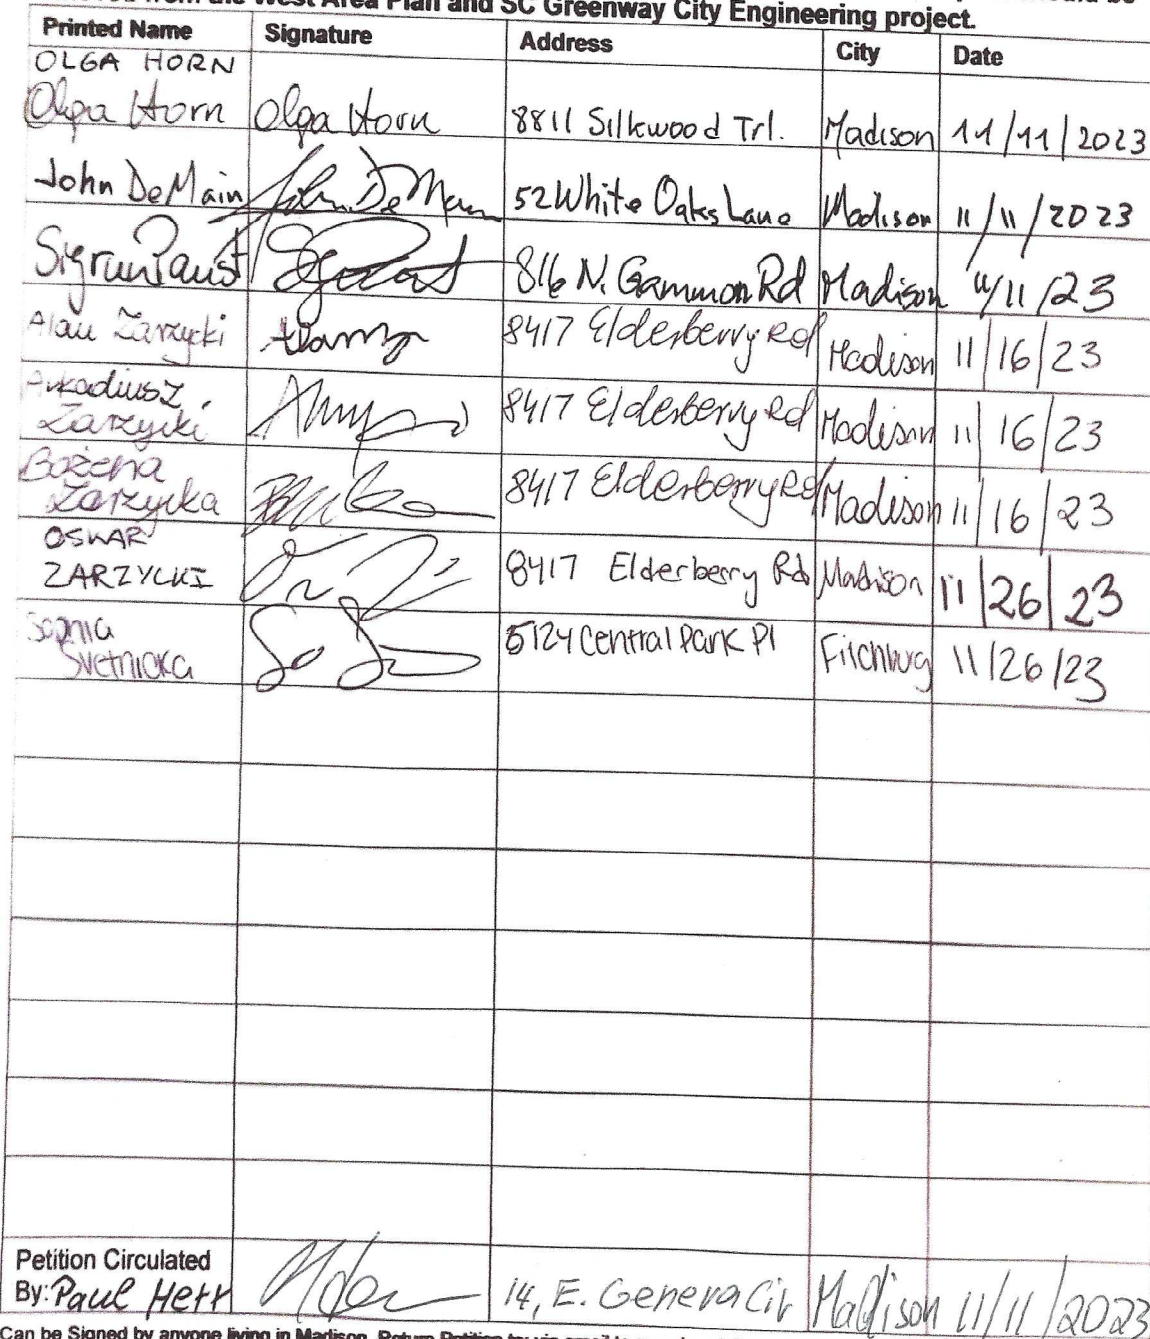 from the West Area Plan and SC Greenway City Engineering project.
Printed Name Signature Address City Date
OLGA HORN
Olga Horn Olga Horn 8811 Silkwood Trl. Madison 11/11/2023
John DeMain John DeMain 52 White Oaks Lane Madison 11/11/2023
Sigrun Paust 816 N. Gammon Rd Madison 11/11/23
Alan Zarzycki 8417 Elderberry Rd Madison 11/16/23
Arkadiusz
Zarzycki 8417 Elderberry Rd Madison 11/16/23
Bożena
Zarzycka 8417 Elderberry Rd Madison 11/16/23
OSKAR
ZARZYCKI 8417 Elderberry Rd Madison 11/26/23
Svetnicka 5124 Central Park Pl Fitchburg 11/26/23
Petition Circulated
By: Paul Hett 14, E. Geneva Cir Madison 11/11/2023
Can be Signed by anyone living in Madison. Return Petition